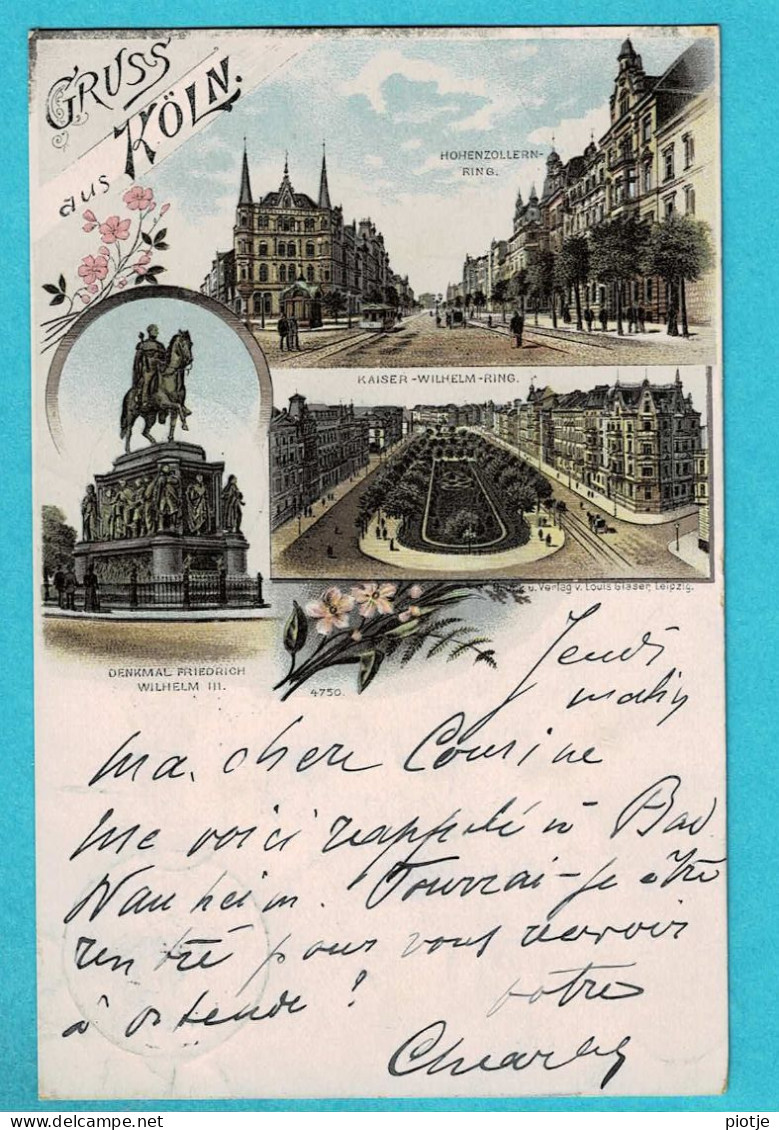 GRUSS
aus KÖLN.
HOHENZOLLERN-
RING.
KAISER-WILHELM-RING.
u. Verlag v. Louis Glaser, Leipzig.
DENKMAL FRIEDRICH
WILHELM III.
4750.
Jeudi
matin
Ma chere Cousine
Me voici rappelé à Bad
Nauheim. Pourrai-je être
rentré pour vous revoir
à Ostende ! votre
Charley
piotje
Delcampe.net